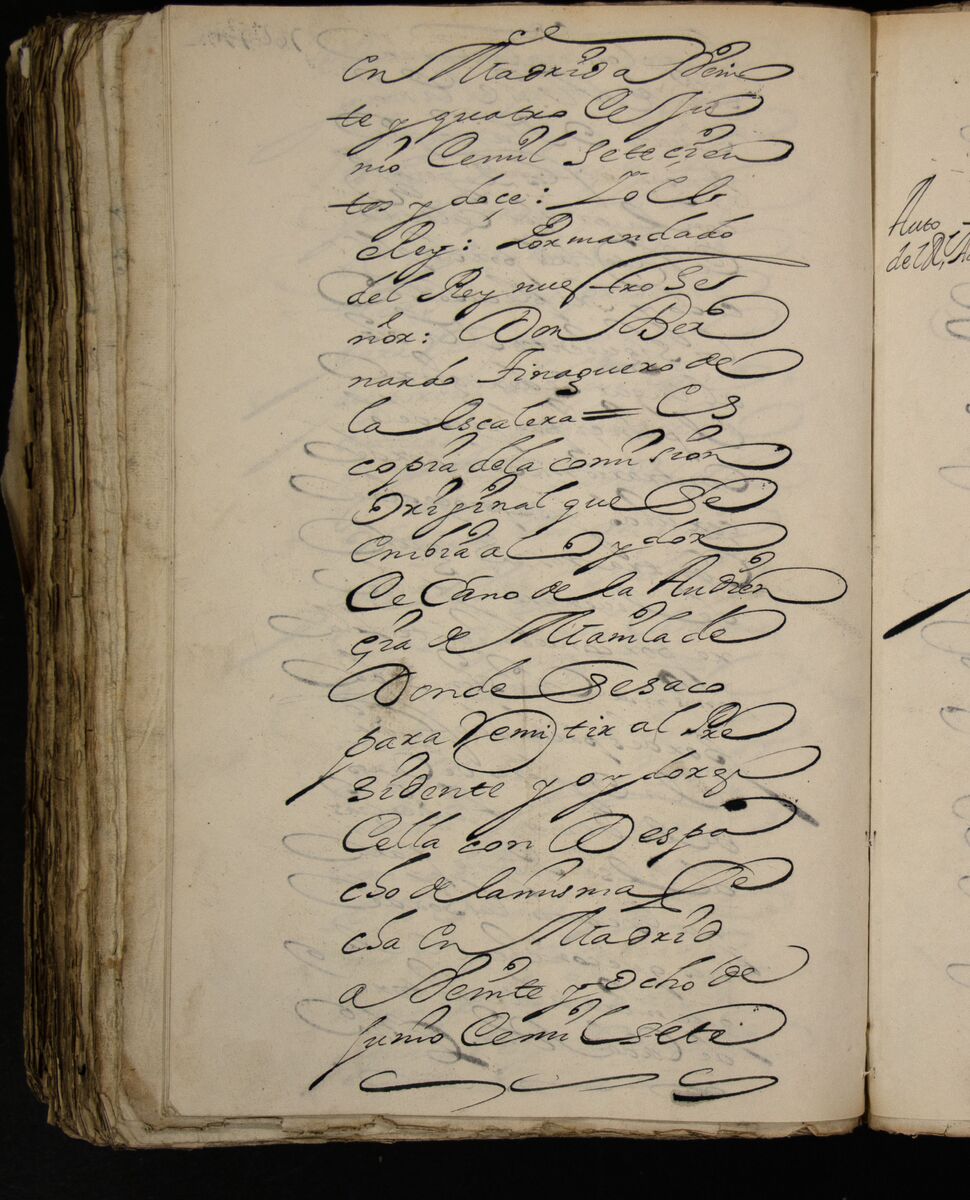 en Madrid a Vein
te y quatro de Ju
nio demil setecien
tos y doçe: Yo El
Rey: Por mandado
del Rey nuestro Se
ñor: Don Ber
nardo Tinaguero de
la Escalera = Es
copia dela comision
Original que se
embia al Oydor
Decano de la Audien
çia de Manila de
Donde se saco
para Remitir al Pre
sidente y oydores
della con Despa
cho de la misma fe
cha en Madrid
a Veinte y Ocho de
Junio demil sete
Auto
del Rl. A